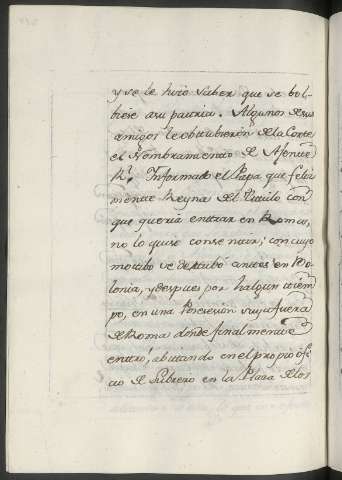 y se le hizo saber que se bol-
biese a su patria. Algunos de sus
amigos le obtubieron de la Corte
el Nombramiento de Agente
Rl. Informado el Papa que feliz
mente Reyna del Titulo con
que queria entrar en Roma,
no lo quiso consentir; con cuyo
motibo se detubo antes en Bo-
lonia, y despues por halgun tiem
po, en una Posesion suya fuera
de Roma donde finalmente
entró, abitando en el propio ofi-
cio de Librero en la Plaza de los